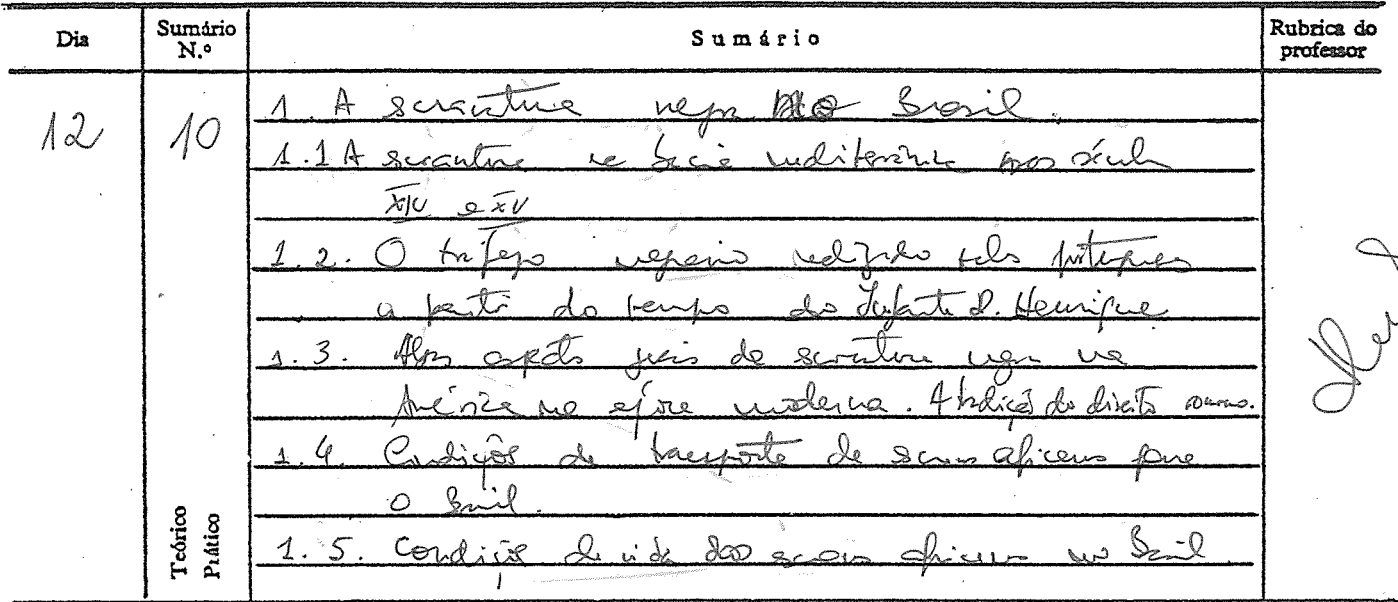 Dia
Sumário N.º
Sumário
Rubrica do professor
12
10
1. A escravatura negra no Brasil.
1.1 A escravatura na bacia mediterrânica nos séculos
XIV e XV
1.2. O tráfego negreiro realizado pelos portugueses
a partir do tempo do Infante D. Henrique
1.3. Alguns aspectos gerais da escravatura negra na
América na época moderna. A tradição do direito romano.
1.4. Condições de transporte de escravos africanos para
o Brasil.
1.5. Condições de vida dos escravos africanos no Brasil
Teórico
Prático